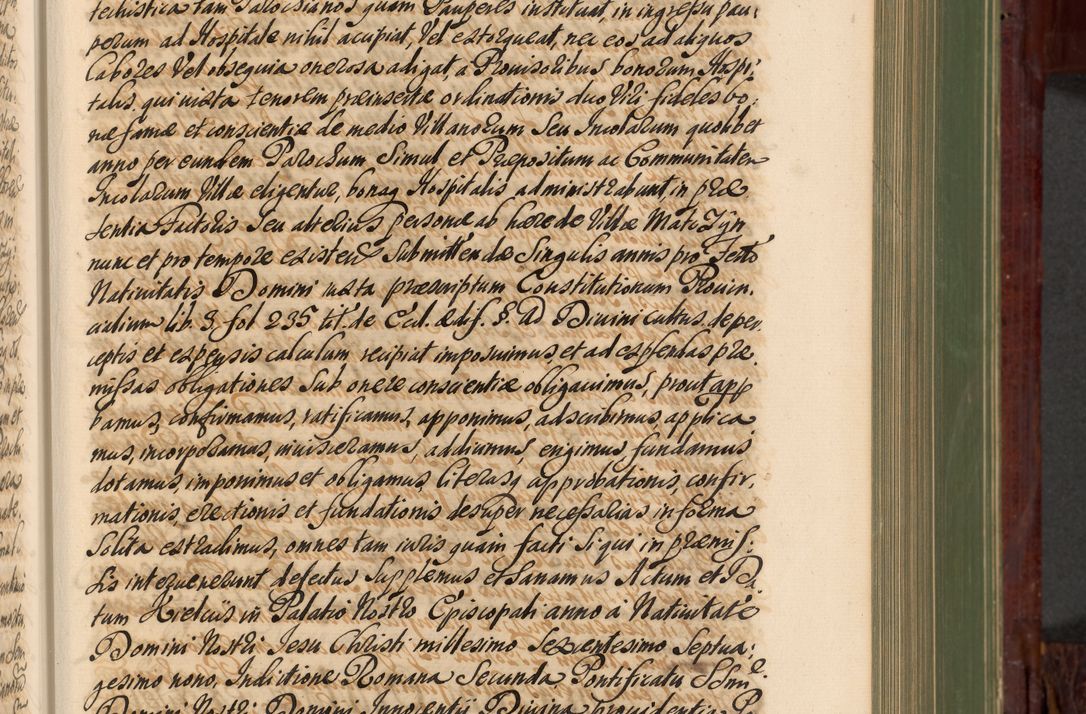 techistica tam Parochianos quam Pauperes instituat, in ingressu pau-
perum ad Hospitale nihil accipiat, Vel extorqueat, nec eos ad aliquos
Labores Vel obsequia onerosa adigat, a Provisoribus bonorum Hospi-
talis, qui iuxta tenorem præinsertæ ordinationis duo Viri fideles bo-
næ famæ et conscientiæ de medio Villanorum Seu Incolarum quolibet
anno per eundem Parochum Simul et Præpositum ac Communitatem
Incolarum Villæ eligentur, bonaq Hospitalis administrabunt, in præ
sentia Factoris Seu alterius personæ ab hærede Villæ
nunc et pro tempore existen Submittendæ Singulis annis pro Festo
Nativitatis Domini iuxta præscriptum Constitutionum Provin-
cialium lib. 3. fol 235 tit. de Ecl. ædif. §. Ad Divini cultus. de per
ceptis et expensis calculum recipiat imposuimus, et ad explendas præ
missas obligationes Sub onere conscientiæ obligavimus, prout app
bamus, confirmamus, ratificamus, apponimus, adscribimus, applica
mus, incorporamus, invisceramus, addiumus, erigimus, fundamus
dotamus, imponimus et obligamus, literasq approbationis, confir-
mationis, erectionis et fundationis desuper necessarias in forma
Solita extradimus, omnes tam iuris quam facti Siqui in præmis-
sis intervenerunt defectus Supplemus et Sanamus Actum et Da-
tum Kielciis in Palatio Nostro Episcopali anno à Nativitate
Domini Nostri Jesu Christi millesimo Sexcentesimo Septua-
gesimo nono, Indictione Romana Secunda Pontificatu SSmi
Domini Nostri Domini Innocentii Divina providentia